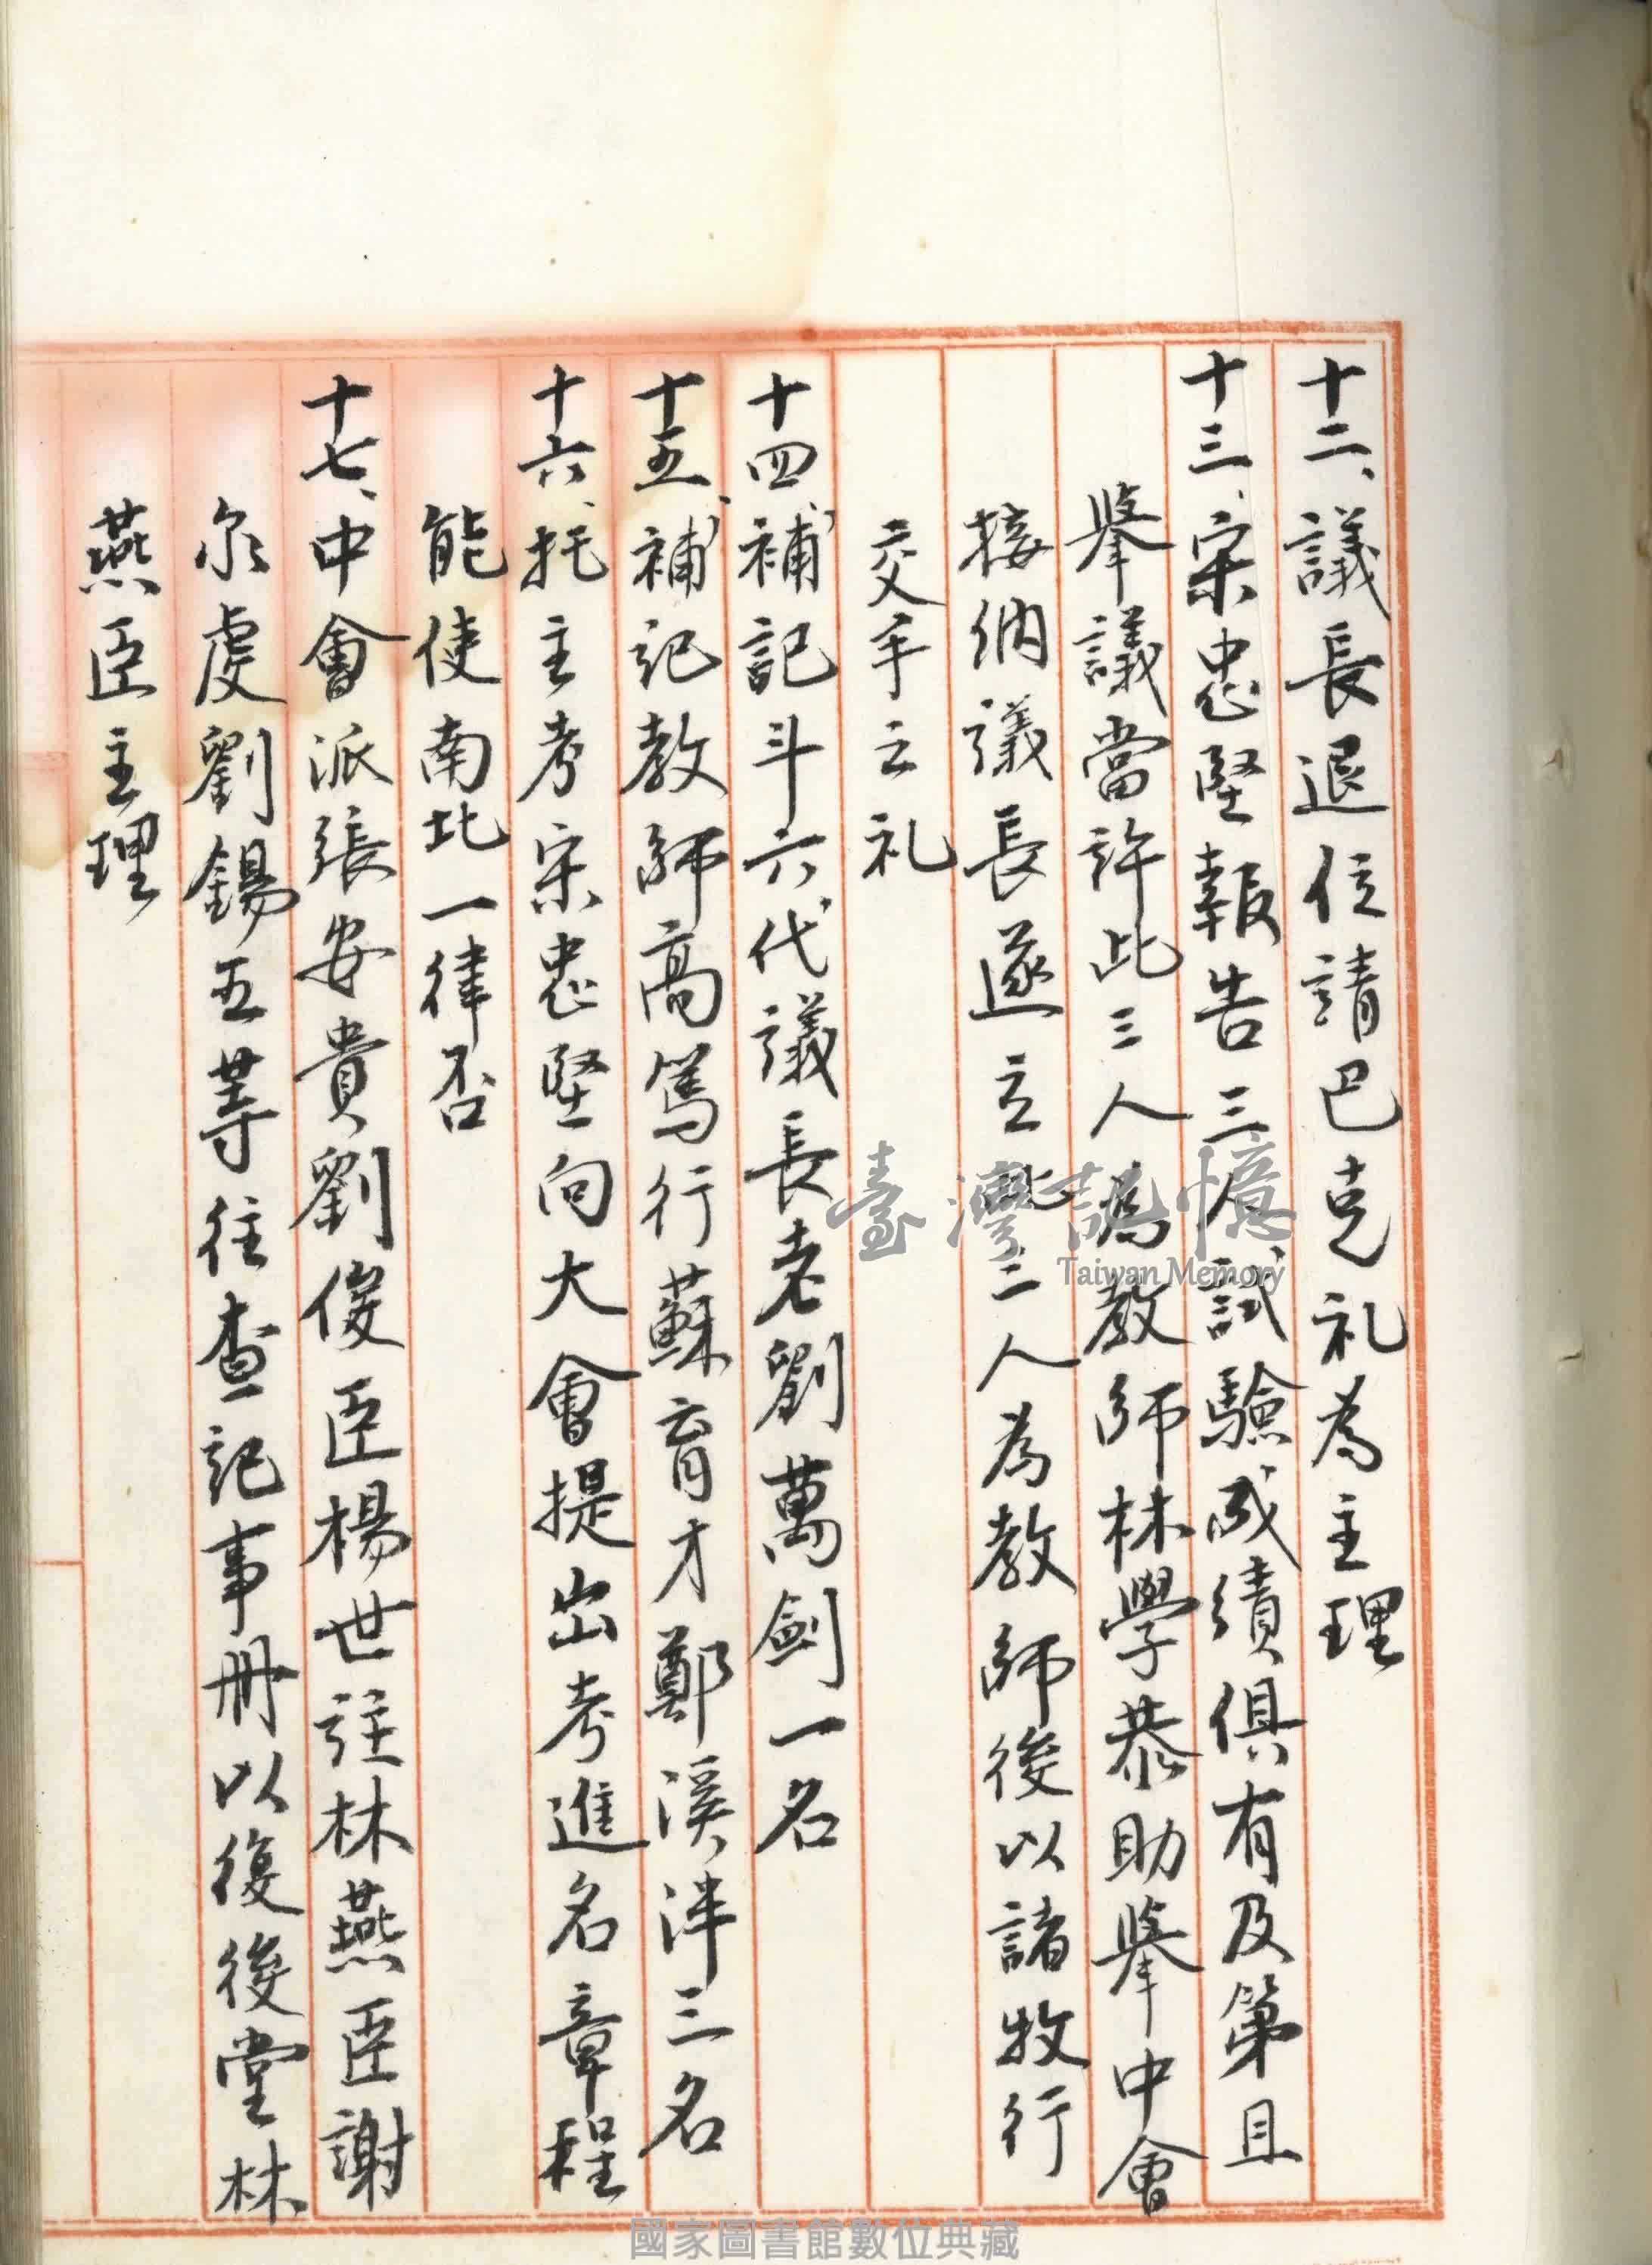 十二、議長退位請巴克礼為主理
十三、宋忠堅報告三人試驗成績俱有及第且
舉議當許此三人為教師林學恭助舉中會
接納議長遂立此三人為教師後以諸牧行
交手之礼
十四、補記斗六代議長老劉萬劍一名
十五、補記教師高篤行蘇育才鄭溪泮三名
十六、托主考宋忠堅向大會提出考進名章程
能使南北一律否
十七、中會派張安貴劉俊臣楊世註林燕臣謝
尔虔劉錫五等往查記事冊以復後堂林
燕臣主理
臺灣記憶
Taiwan Memory
國家圖書館數位典藏